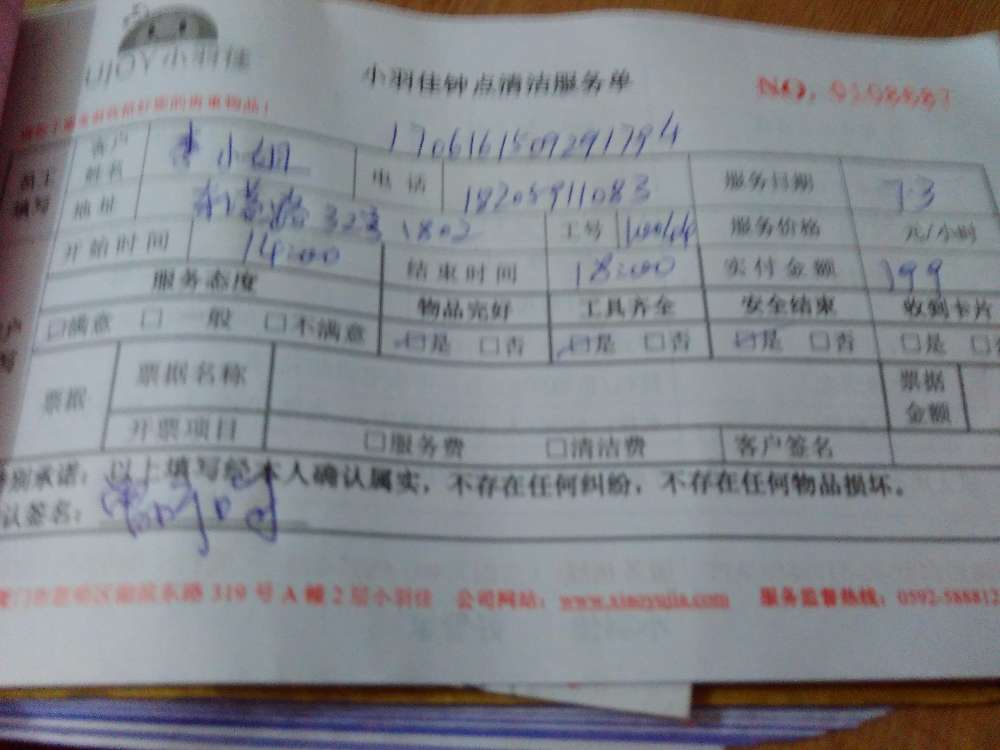 UJOY小羽佳
小羽佳钟点清洁服务单
NO. 0108887
1706161509291794
员工填写 客户姓名 李小姐 电话 18205911083 服务日期 7.3
地址 323 1802 工号 服务价格 元/小时
开始时间 14:00 结束时间 18:00 实付金额 199
服务态度 物品完好 工具齐全 安全结束 收到卡片
□满意 □一般 □不满意 ☑是 □否 ☑是 □否 ☑是 □否 □是
票据 票据名称 票据金额
开票项目 □服务费 □清洁费 客户签名
别承诺：以上填写经本人确认属实，不存在任何纠纷，不存在任何物品损坏。
认签名：
东路 319 号 A 幢 2 层小羽佳 公司网站：www.xiaoyujia.com 服务监督热线：0592-588812